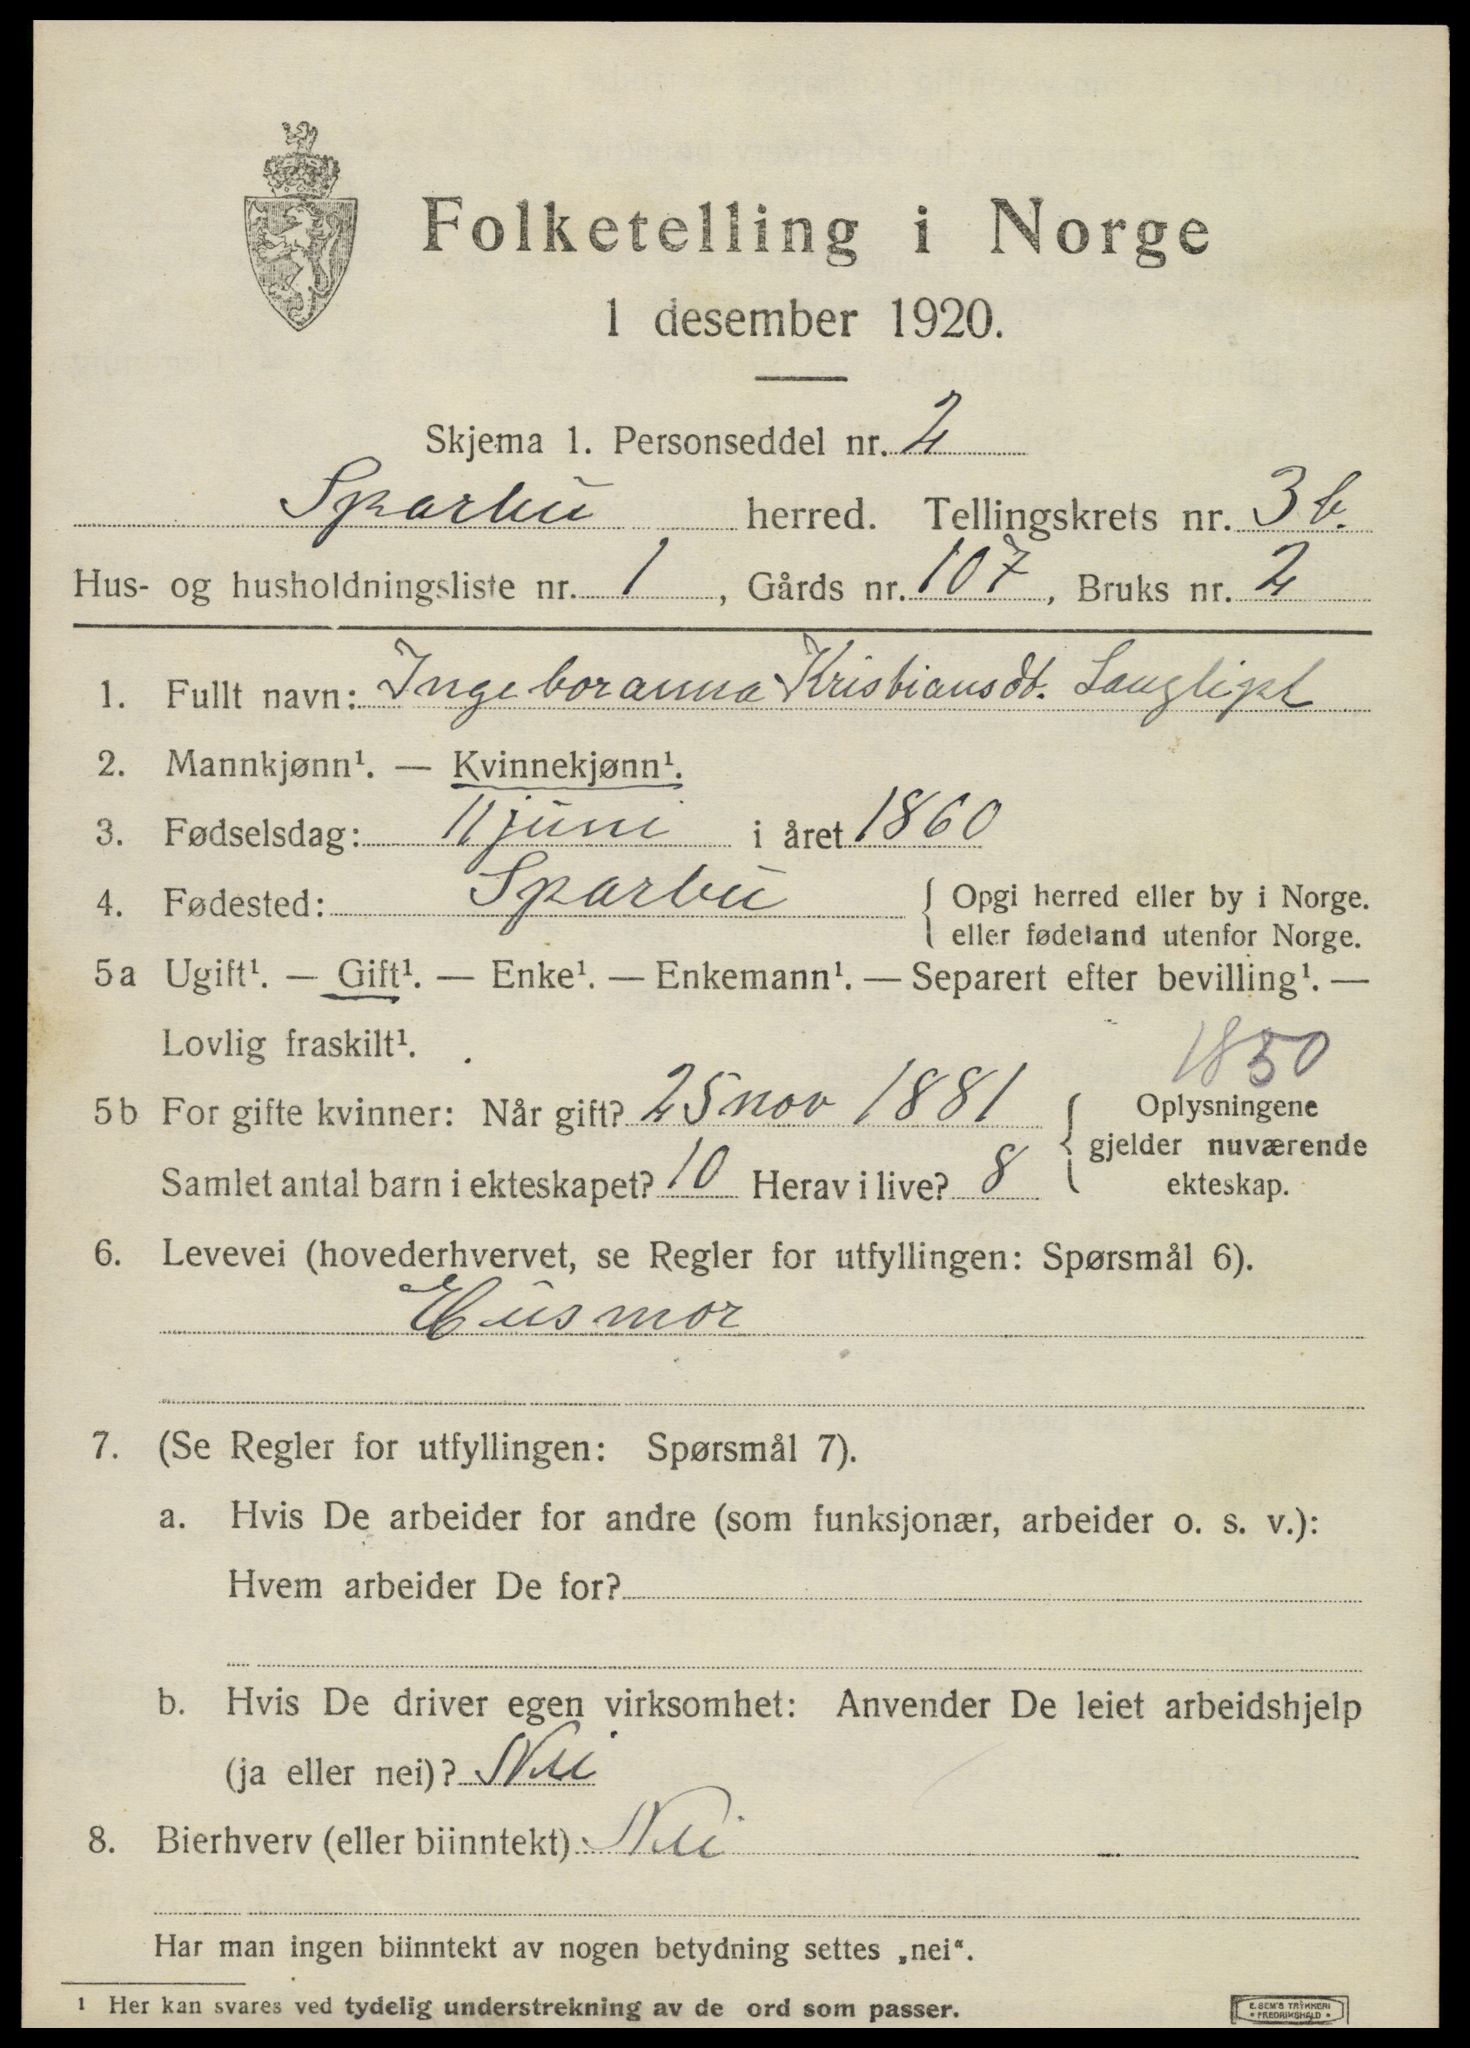 Folketelling i Norge
1 desember 1920.
Skjema 1. Personseddel nr. 2
Sparbu herred. Tellingskrets nr. 3 b.
Hus- og husholdningsliste nr. 1, Gårds nr. 107, Bruks nr. 2
1. Fullt navn: Ingeboranna Kristiansdt.
2. Mannkjønn¹. — Kvinnekjønn¹.
3. Fødselsdag: 11 juni i året 1860
4. Fødested: Sparbu { Opgi herred eller by i Norge.
eller fødeland utenfor Norge.
5 a Ugift¹. — Gift¹. — Enke¹. — Enkemann¹. — Separert efter bevilling¹. —
Lovlig fraskilt¹.
1850
5 b For gifte kvinner: Når gift? 25 nov 1881 { Oplysningene
gjelder nuværende
Samlet antal barn i ekteskapet? 10 Herav i live? 8 ekteskap.
6. Levevei (hovederhvervet, se Regler for utfyllingen: Spørsmål 6).
Husmor
7. (Se Regler for utfyllingen: Spørsmål 7).
a. Hvis De arbeider for andre (som funksjonær, arbeider o. s. v.):
Hvem arbeider De for?
b. Hvis De driver egen virksomhet: Anvender De leiet arbeidshjelp
(ja eller nei)? Nei
8. Bierhverv (eller biinntekt): Nei
Har man ingen biinntekt av nogen betydning settes „nei“.
¹ Her kan svares ved tydelig understrekning av de ord som passer.
E. SEM'S TRYKKERI
• FREDRIKSHALD •